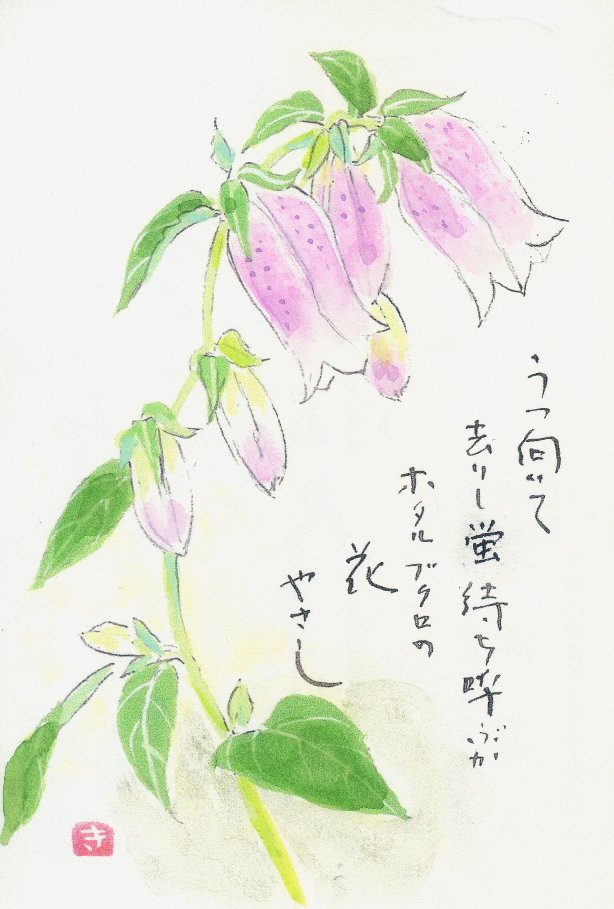 うつ向いて
去りし蛍待ち呼ぶか
ホタルブクロの
花
やさし
き